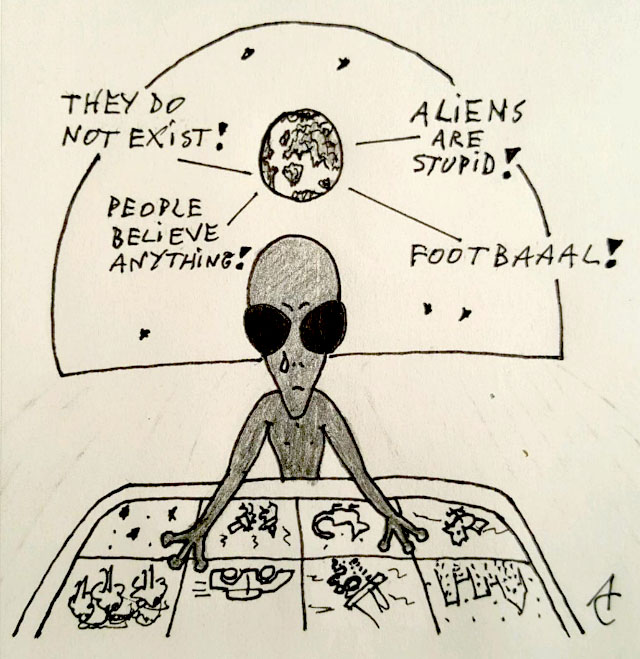 THEY DO
NOT EXIST!
ALIENS
ARE
STUPID!
PEOPLE
BELIEVE
ANYTHING!
FOOTBAAAL!
AC